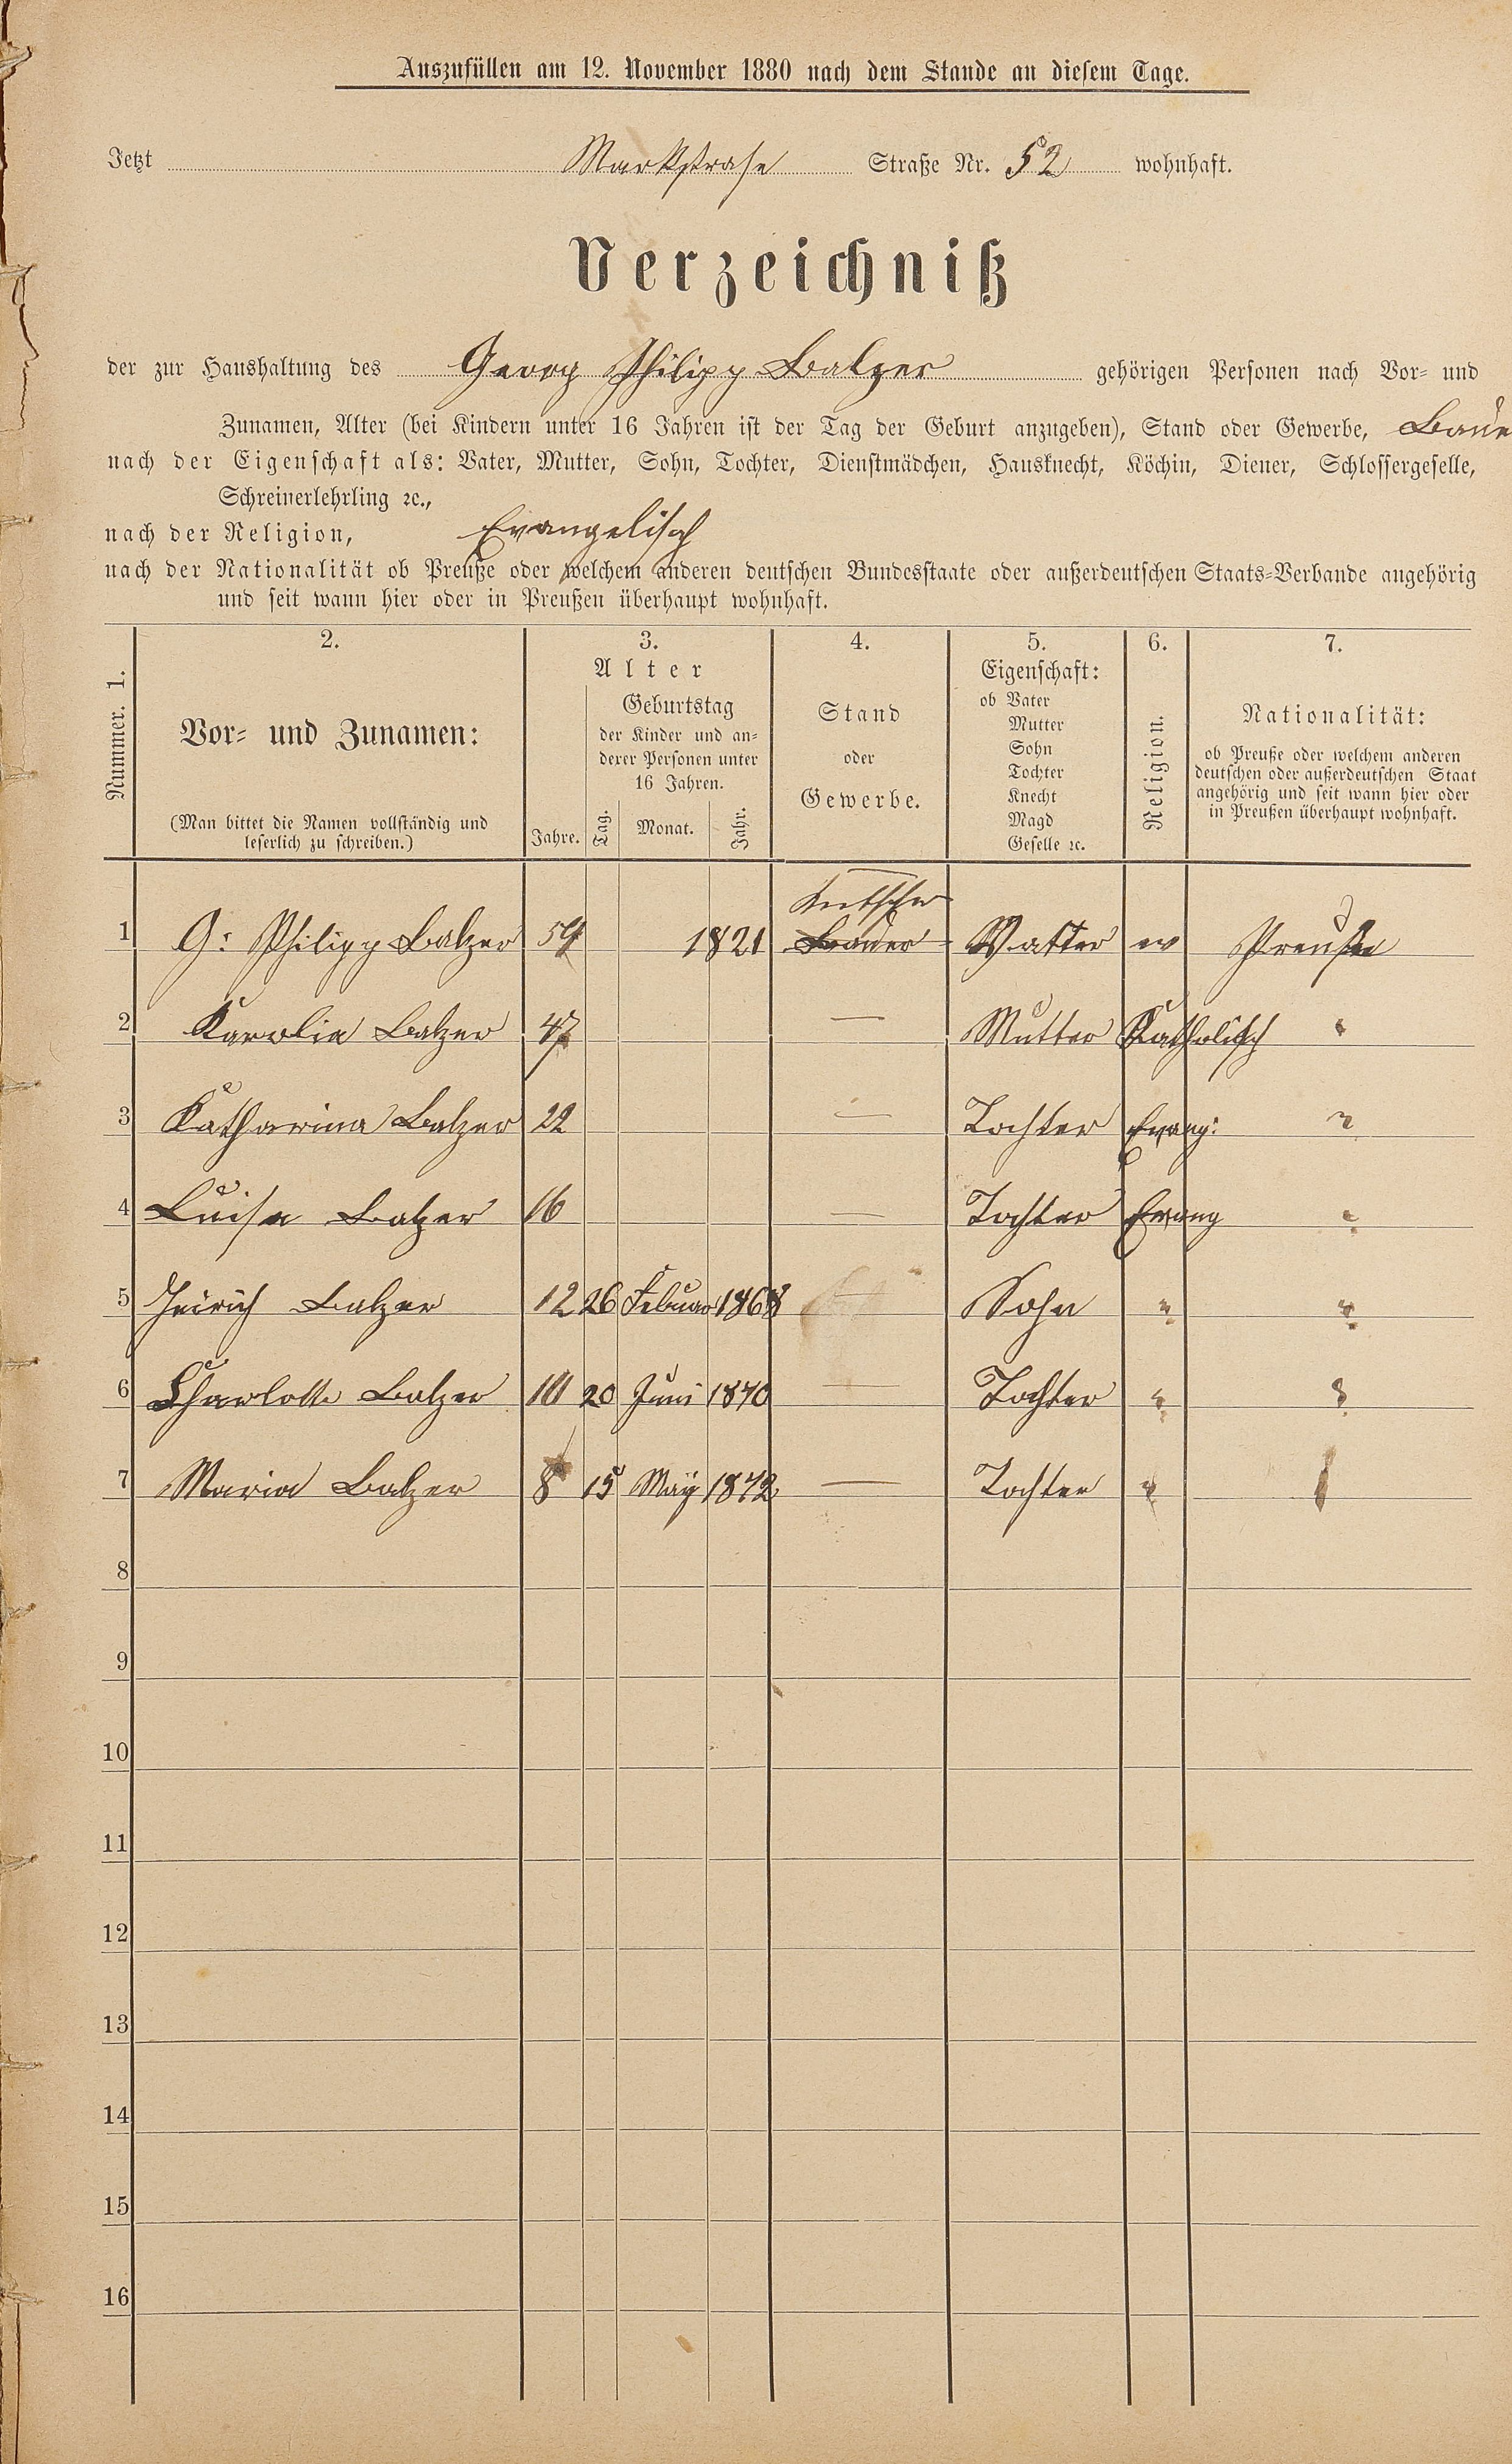 Auszufüllen am 12. November 1880 nach dem Stande an diesem Tage.
Jetzt Markstrase Straße Nr. 52 wohnhaft.
Verzeichniß
der zur Haushaltung des Georg Philipp Balzer gehörigen Personen nach Vor- und
Zunamen, Alter (bei Kindern unter 16 Jahren ist der Tag der Geburt anzugeben), Stand oder Gewerbe, Baue
nach der Eigenschaft als: Vater, Mutter, Sohn, Tochter, Dienstmädchen, Hausknecht, Köchin, Diener, Schlossergeselle,
Schreinerlehrling ꝛc.,
nach der Religion, Evangelisch
nach der Nationalität ob Preuße oder welchem anderen deutschen Bundesstaate oder außerdeutschen Staats-Verbande angehörig
und seit wann hier oder in Preußen überhaupt wohnhaft.
Nummer. 1.
2.
Vor- und Zunamen:
(Man bittet die Namen vollständig und
leserlich zu schreiben.)
3.
Alter
Jahre.
Geburtstag
der Kinder und an-
derer Personen unter
16 Jahren.
Tag. Monat. Jahr.
4.
Stand
oder
Gewerbe.
5.
Eigenschaft:
ob Vater
Mutter
Sohn
Tochter
Knecht
Magd
Geselle ꝛc.
6.
Religion.
7.
Nationalität:
ob Preuße oder welchem anderen
deutschen oder außerdeutschen Staat
angehörig und seit wann hier oder
in Preußen überhaupt wohnhaft.
Kutscher
1 G: Philipp Balzer 59 1821 Bauer Watter ev Preuße
2 Karolin Balzer 47 — Mutter Katholisch "
3 Katharina Balzer 22 — Tochter Evang: "
4 Luise Balzer 16 — Tochter Evang "
5 Heirich Balzer 12 26 Februar 1868 — Sohn " "
6 Charlotte Balzer 10 20 Juni 1870 — Tochter " "
7 Maria Balzer 8 15 Maÿ 1872 — Tochter "
8
9
10
11
12
13
14
15
16